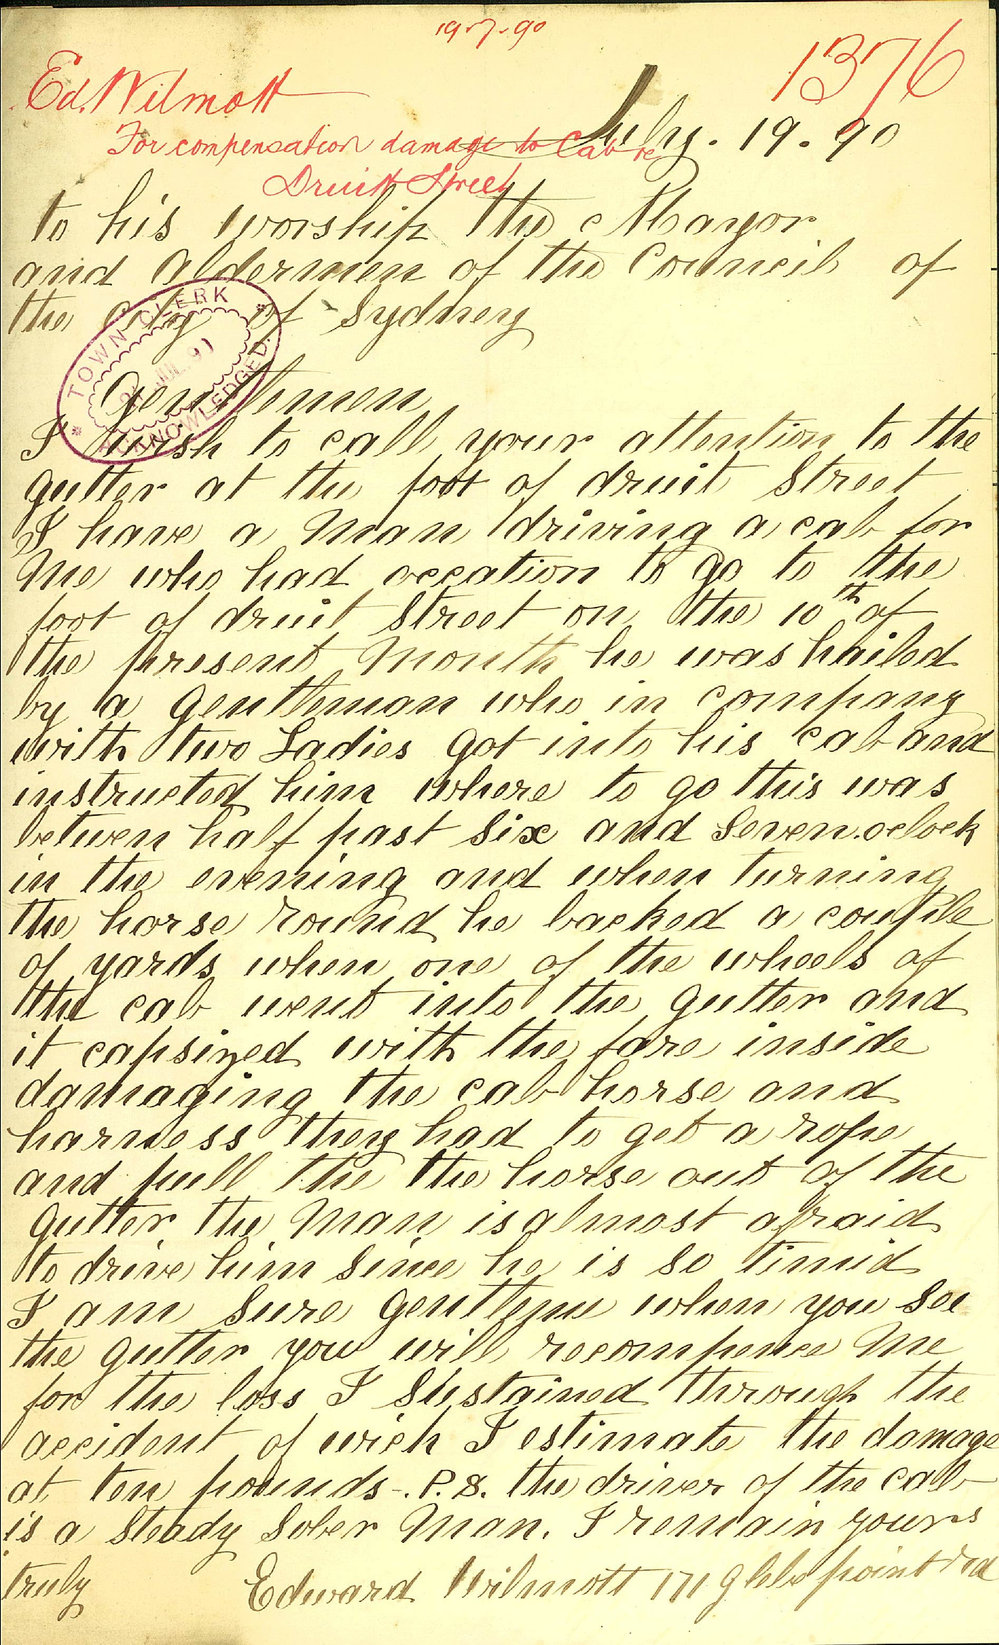 19-7-90
1376
Ed. Wilmott
July. 19. 90
For compensation damage to Cab re
Druitt Street
to his worship the Mayor
and Aldermen of the Council of
the City of Sydney
TOWN CLERK
ACKNOWLEDGED
Gentlemen
I wish to call your attention to the
gutter at the foot of druit Street
I have a Man driving a cab for
Me who had occation to go to the
foot of druit Street on the 10th of
the present Month he was hailed
by a Gentleman who in company
with two Ladies got into his cab and
instructed him where to go this was
between half past six and Seven.oclock
in the evening and when turning
the horse round he backed a couple
of yards when one of the wheels of
the cab went into the gutter and
it capsized with the fare inside
damaging the cab horse and
harness they had to get a rope
and pull the the horse out of the
gutter the Man is almost afraid
to drive him since he is so timid
I am Sure gentlemen when you See
the gutter you will recompence Me
for the loss I Sustained through the
accident of wich I estimate the damage
at ten pounds-. P.S. the driver of the cab
is a Steady Sober Man. I remain yours
truly Edward Wilmott 171 glebe point rd